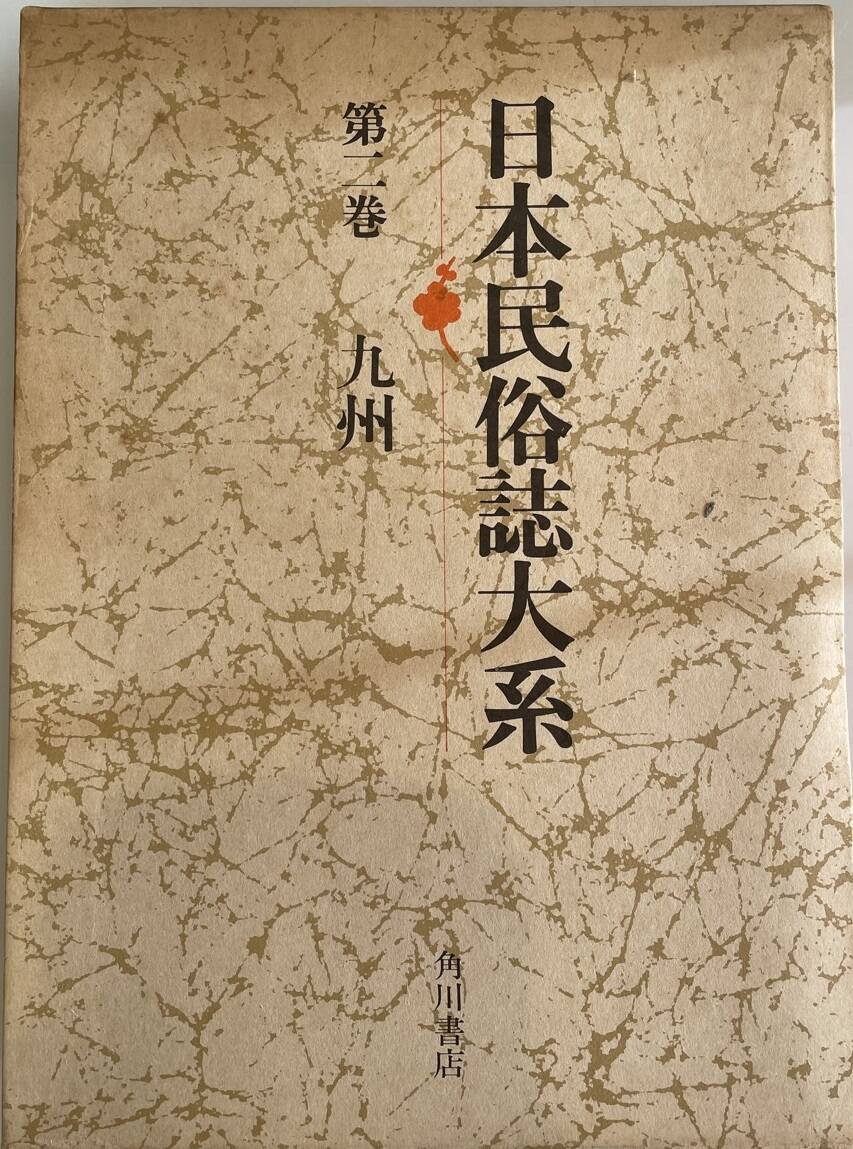 日本民俗誌大系
第二巻 九州
角川書店